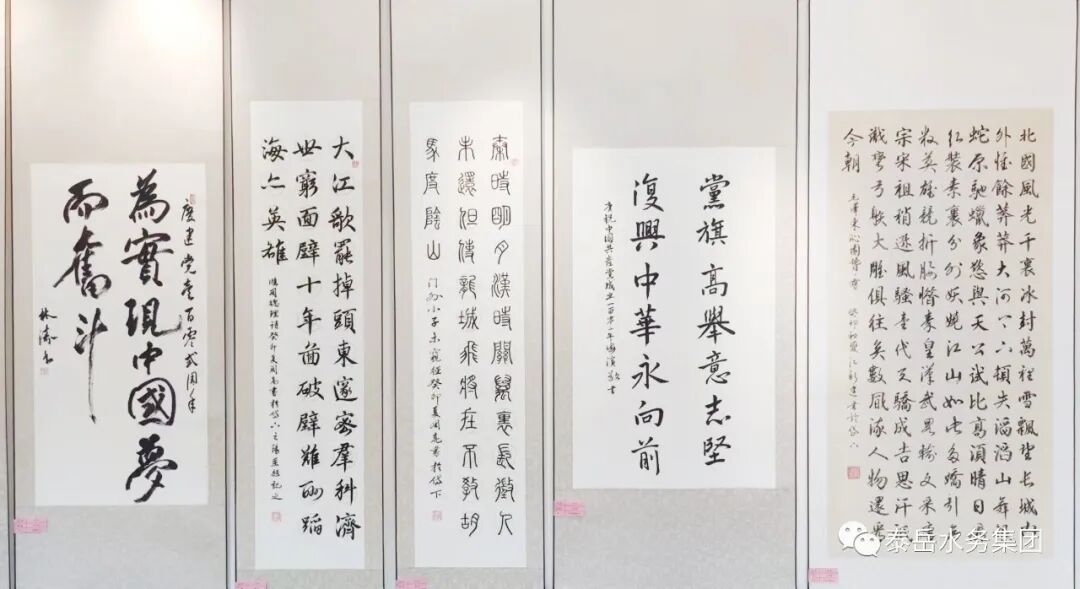 慶建党壹百零贰周年
為實現中國夢
而奮斗
林濤书
大江歌罷掉頭東邃密羣科濟
世窮面壁十年圖破壁難酬蹈
海亦英雄
秦時明月漢時關萬裏長徵人
未還但使龍城飛將在不教胡
馬度陰山
癸卯夏周亮書於岱下
黨旗高舉意志堅
復興中華永向前
慶祝中國共産黨成立一百零二年
北國風光千裏冰封萬裡雪飄望長城内
外惟餘莽莽大河上下頓失滔滔山舞銀
蛇原馳蠟象欲與天公試比高須晴日看
红裝素裹分外妖嬈江山如此多嬌引無
數英雄競折腰惜秦皇漢武略輸文采唐
宗宋祖稍遜風騷壹代天驕成吉思汗祇
識彎弓射大雕俱往矣數風流人物還看
今朝
毛澤東沁園春雪 癸卯初夏
泰岳水务集团